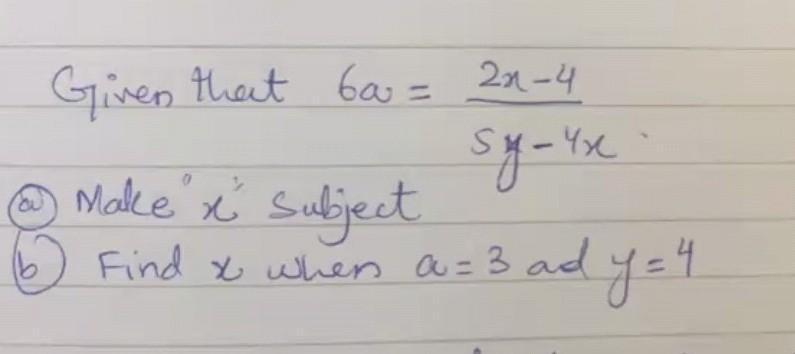 Given that 6a = 2x-4 / 5y-4x
(a) Make "x" subject
(b) Find x when a=3 ad y=4